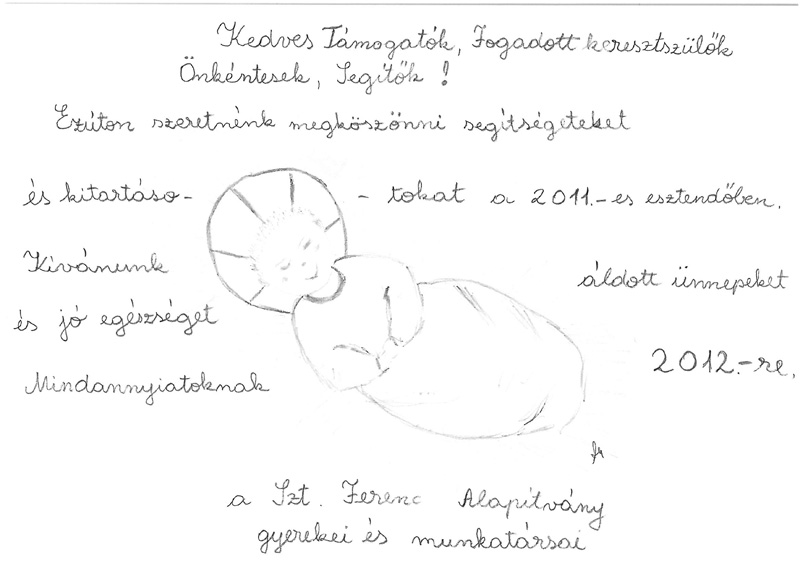 Kedves Támogatók, Fogadott keresztszülők
Önkéntesek, Segítők !
Ezúton szeretnénk megköszönni segítségeteket
és kitartáso- - tokat a 2011.-es esztendőben.
Kivánunk áldott ünnepeket
és jó egészséget 2012.-re,
Mindannyiatoknak
a Szt. Ferenc Alapítvány
gyerekei és munkatársai